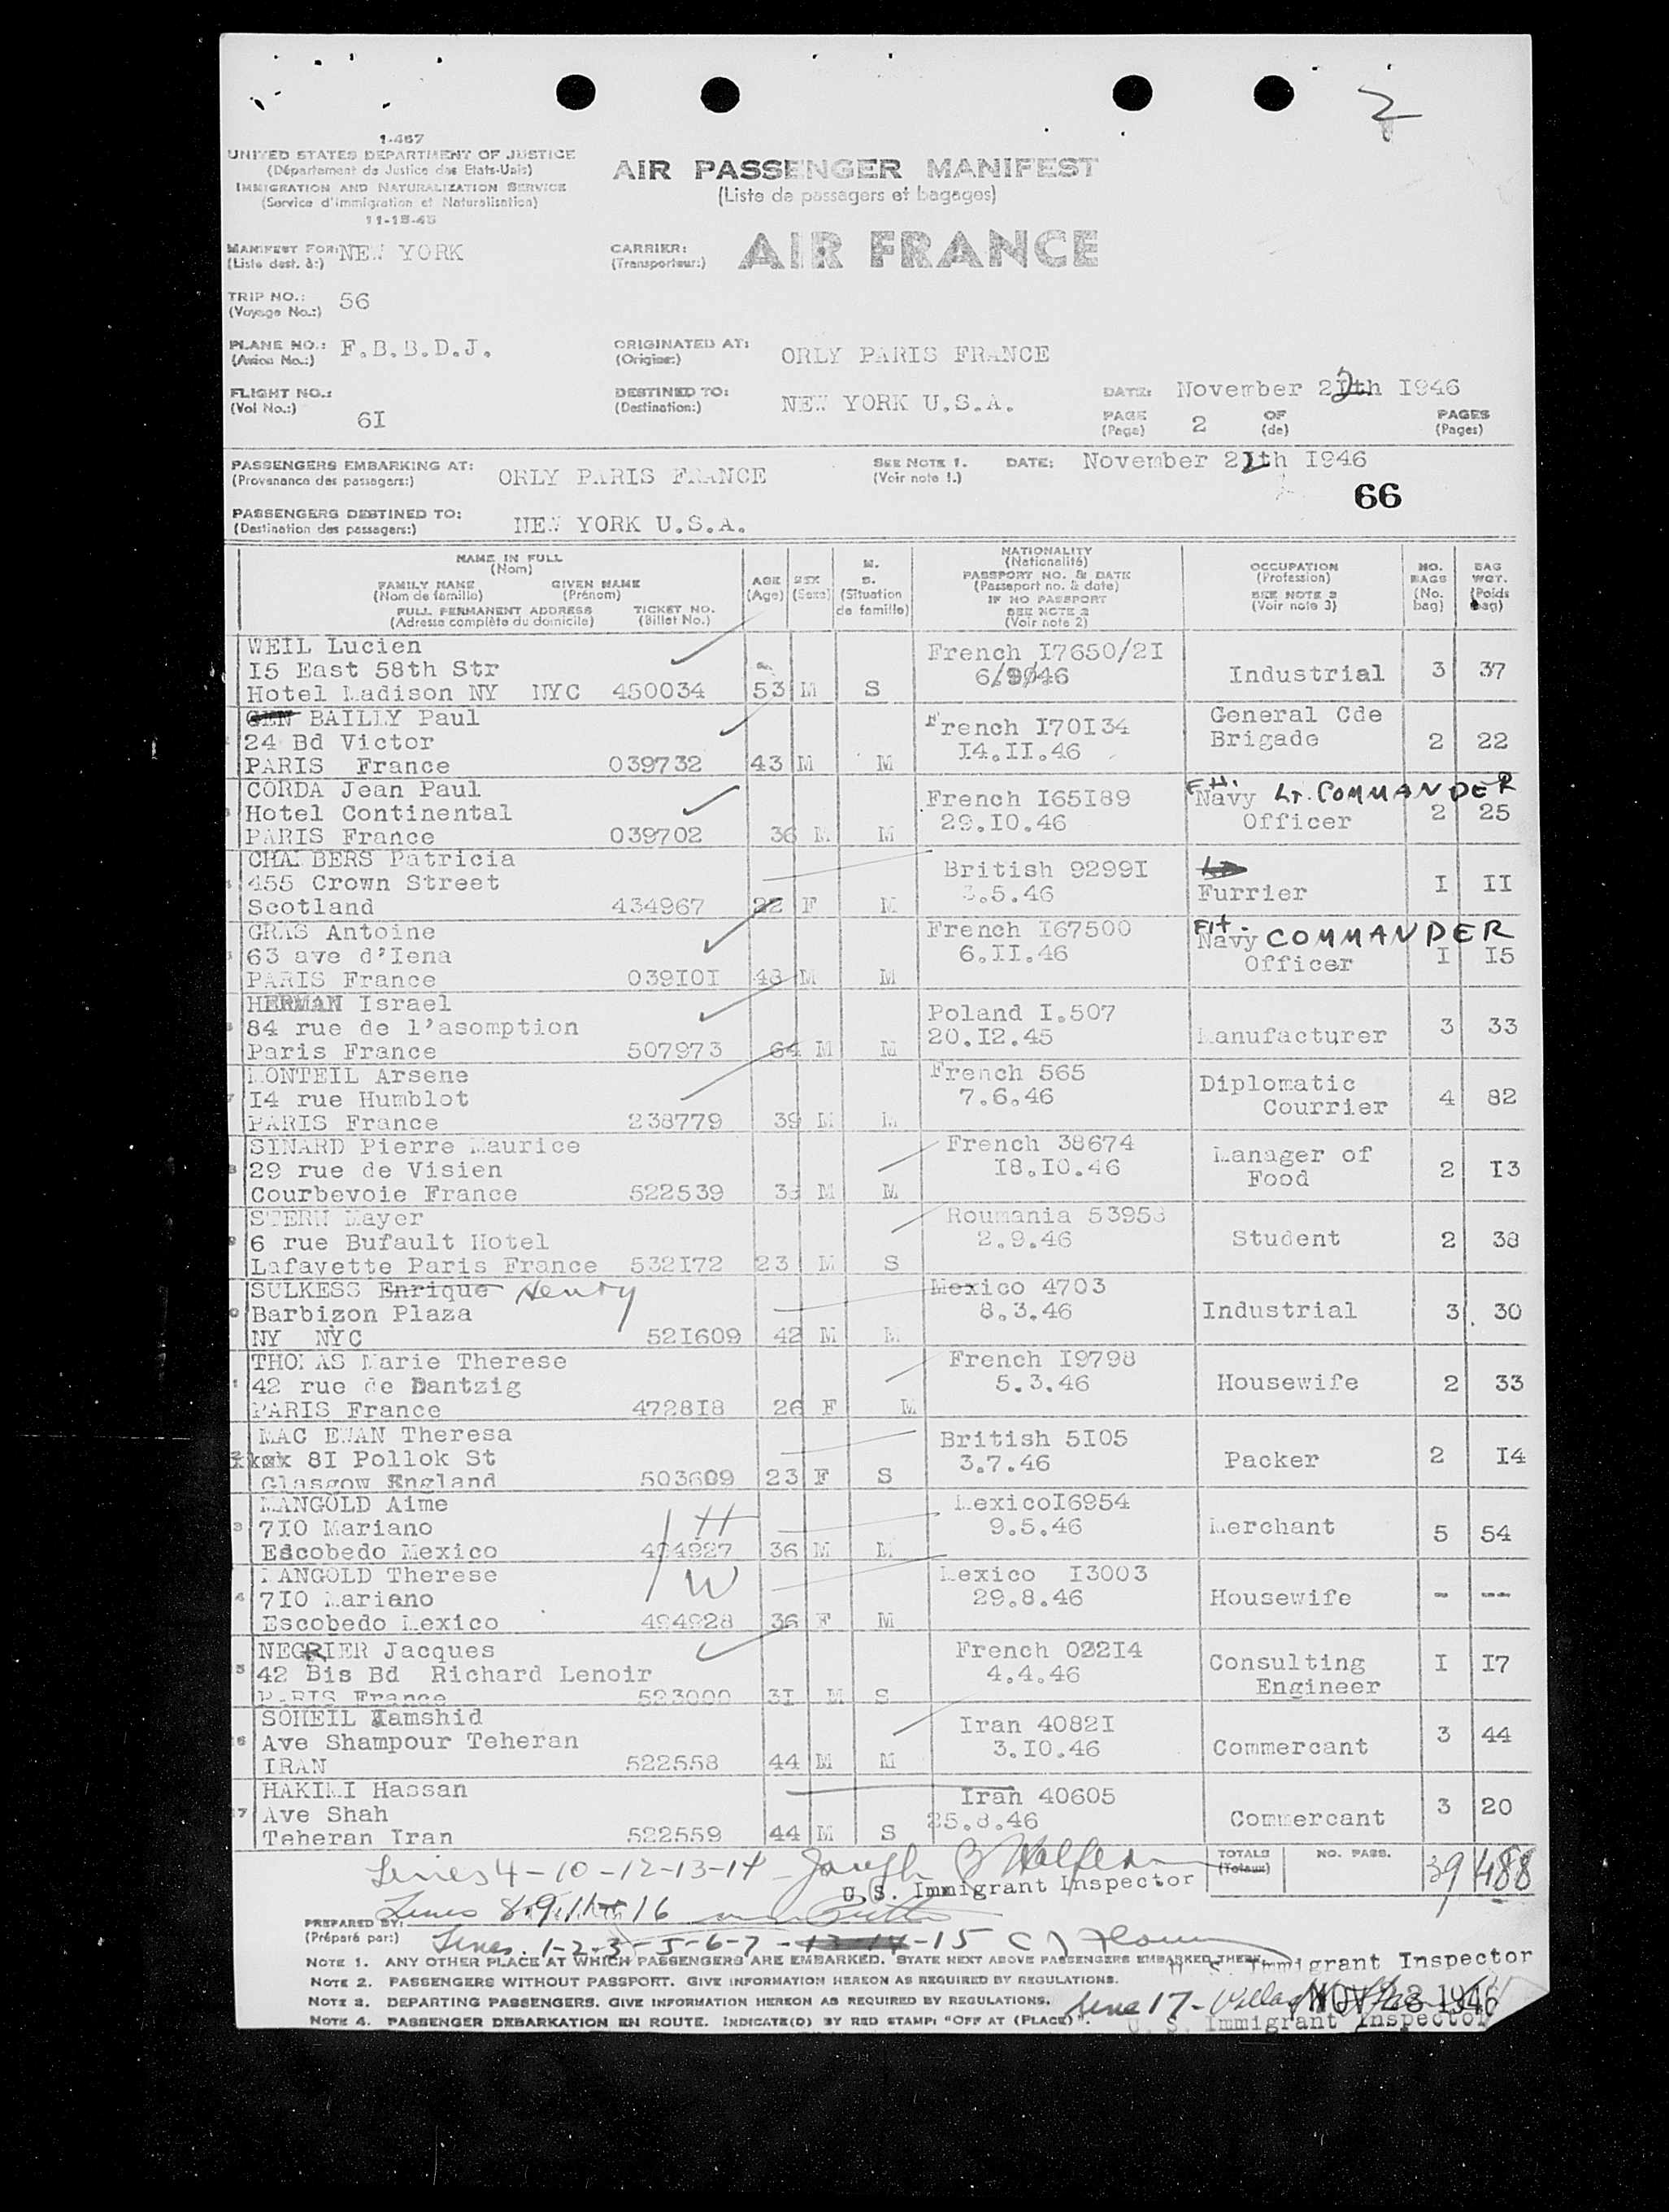 2
1-467
UNITED STATES DEPARTMENT OF JUSTICE
(Département de Justice des Etats-Unis)
IMMIGRATION AND NATURALIZATION SERVICE
(Service d'immigration et Naturalisation)
11-15-45
AIR PASSENGER MANIFEST
(Liste de passagers et bagages)
MANIFEST FOR: NEW YORK
(Liste dest. à:)
CARRIER: AIR FRANCE
(Transporteur:)
TRIP NO.: 56
(Voyage No.:)
PLANE NO.: F.B.B.D.J.
(Avion No.:)
ORIGINATED AT: ORLY PARIS FRANCE
(Origine:)
FLIGHT NO.: 6I
(Vol No.:)
DESTINED TO: NEW YORK U.S.A.
(Destination:)
DATE: November 22th I946
PAGE 2 OF PAGES
(Page) (de) (Pages)
PASSENGERS EMBARKING AT: ORLY PARIS FRANCE
(Provenance des passagers:)
SEE NOTE 1. DATE: November 2Ith I946
(Voir note 1.)
66
PASSENGERS DESTINED TO: NEW YORK U.S.A.
(Destination des passagers:)
NAME IN FULL
(Nom)
FAMILY NAME GIVEN NAME
(Nom de famille) (Prénom)
FULL PERMANENT ADDRESS TICKET NO.
(Adresse complète du domicile) (Billet No.)
AGE
(Age)
SEX
(Sexe)
M.
S.
(Situation
de famille)
NATIONALITY
(Nationalité)
PASSPORT NO. & DATE
(Passeport no. & date)
IF NO PASSPORT
SEE NOTE 2
(Voir note 2)
OCCUPATION
(Profession)
SEE NOTE 3
(Voir note 3)
NO.
BAGS
(No.
bag)
BAG
WGT.
(Poids
bag)
WEIL Lucien French I7650/2I
I5 East 58th Str 6/9/46 Industrial 3 37
Hotel Madison NY NYC 450034 53 M S
GEN BAILLY Paul French I70I34 General Cde
24 Bd Victor I4.II.46 Brigade 2 22
PARIS France 039732 43 M M
CORDA Jean Paul French I65I89 Navy LT. COMMANDER
3 Hotel Continental 29.I0.46 Officer 2 25
PARIS France 039702 36 M M
CHAMBERS Patricia British 9299I
4 455 Crown Street 3.5.46 Furrier I II
Scotland 434967 22 F M
GRAS Antoine French I67500 Navy COMMANDER
63 ave d'Iena 6.II.46 Officer I I5
PARIS France 039I0I 48 M M
HERMAN Israel Poland I.507
84 rue de l'asomption 20.I2.45 Manufacturer 3 33
Paris France 507973 64 M M
MONTEIL Arsene French 565 Diplomatic
7 I4 rue Humblot 7.6.46 Courrier 4 82
PARIS France 238779 39 M M
SINARD Pierre Maurice French 38674 Manager of
8 29 rue de Visien I8.I0.46 Food 2 I3
Courbevoie France 522539 M M
STERN Mayer Roumania 53958
9 6 rue Bufault Hotel 2.9.46 Student 2 38
Lafayette Paris France 532I72 23 M S
SULKESS Enrique Henry Mexico 4703
0 Barbizon Plaza 8.3.46 Industrial 3 30
NY NYC 52I609 42 M M
THOMAS Marie Therese French I9798
1 42 rue de Dantzig 5.3.46 Housewife 2 33
PARIS France 4728I8 26 F M
MAC EWAN Theresa British 5I05
8I Pollok St 3.7.46 Packer 2 I4
Glasgow England 503609 23 F S
MANGOLD Aime H MexicoI6954
3 7I0 Mariano 9.5.46 Merchant 5 54
Escobedo Mexico 494927 36 M M
MANGOLD Therese W Mexico I3003
4 7I0 Mariano 29.8.46 Housewife - --
Escobedo Mexico 494928 36 F M
NEGRIER Jacques French 022I4 Consulting
5 42 Bis Bd Richard Lenoir 4.4.46 Engineer I I7
PARIS France 523000 3I M S
SOHEIL Jamshid Iran 4082I
6 Ave Shampour Teheran 3.I0.46 Commercant 3 44
IRAN 522558 44 M M
HAKIMI Hassan Iran 40605
7 Ave Shah 25.8.46 Commercant 3 20
Teheran Iran 522559 44 M S
TOTALS NO. PASS. 39 488
(Totaux)
Lines 4-10-12-13-14 - Joseph B
U.S. Immigrant Inspector
Lines 8.9.11 16
PREPARED BY:
(Préparé par:)
Lines. 1-2-3-5-6-7-13-14-15
U. S. Immigrant Inspector
NOTE 1. ANY OTHER PLACE AT WHICH PASSENGERS ARE EMBARKED. STATE NEXT ABOVE PASSENGERS EMBARKED THERE.
NOTE 2. PASSENGERS WITHOUT PASSPORT. GIVE INFORMATION HEREON AS REQUIRED BY REGULATIONS.
NOTE 3. DEPARTING PASSENGERS. GIVE INFORMATION HEREON AS REQUIRED BY REGULATIONS.
Line 17 - NOV 28 1946
NOTE 4. PASSENGER DEBARKATION EN ROUTE. INDICATE(D) BY RED STAMP: "OFF AT (PLACE)".
U. S. Immigrant Inspector